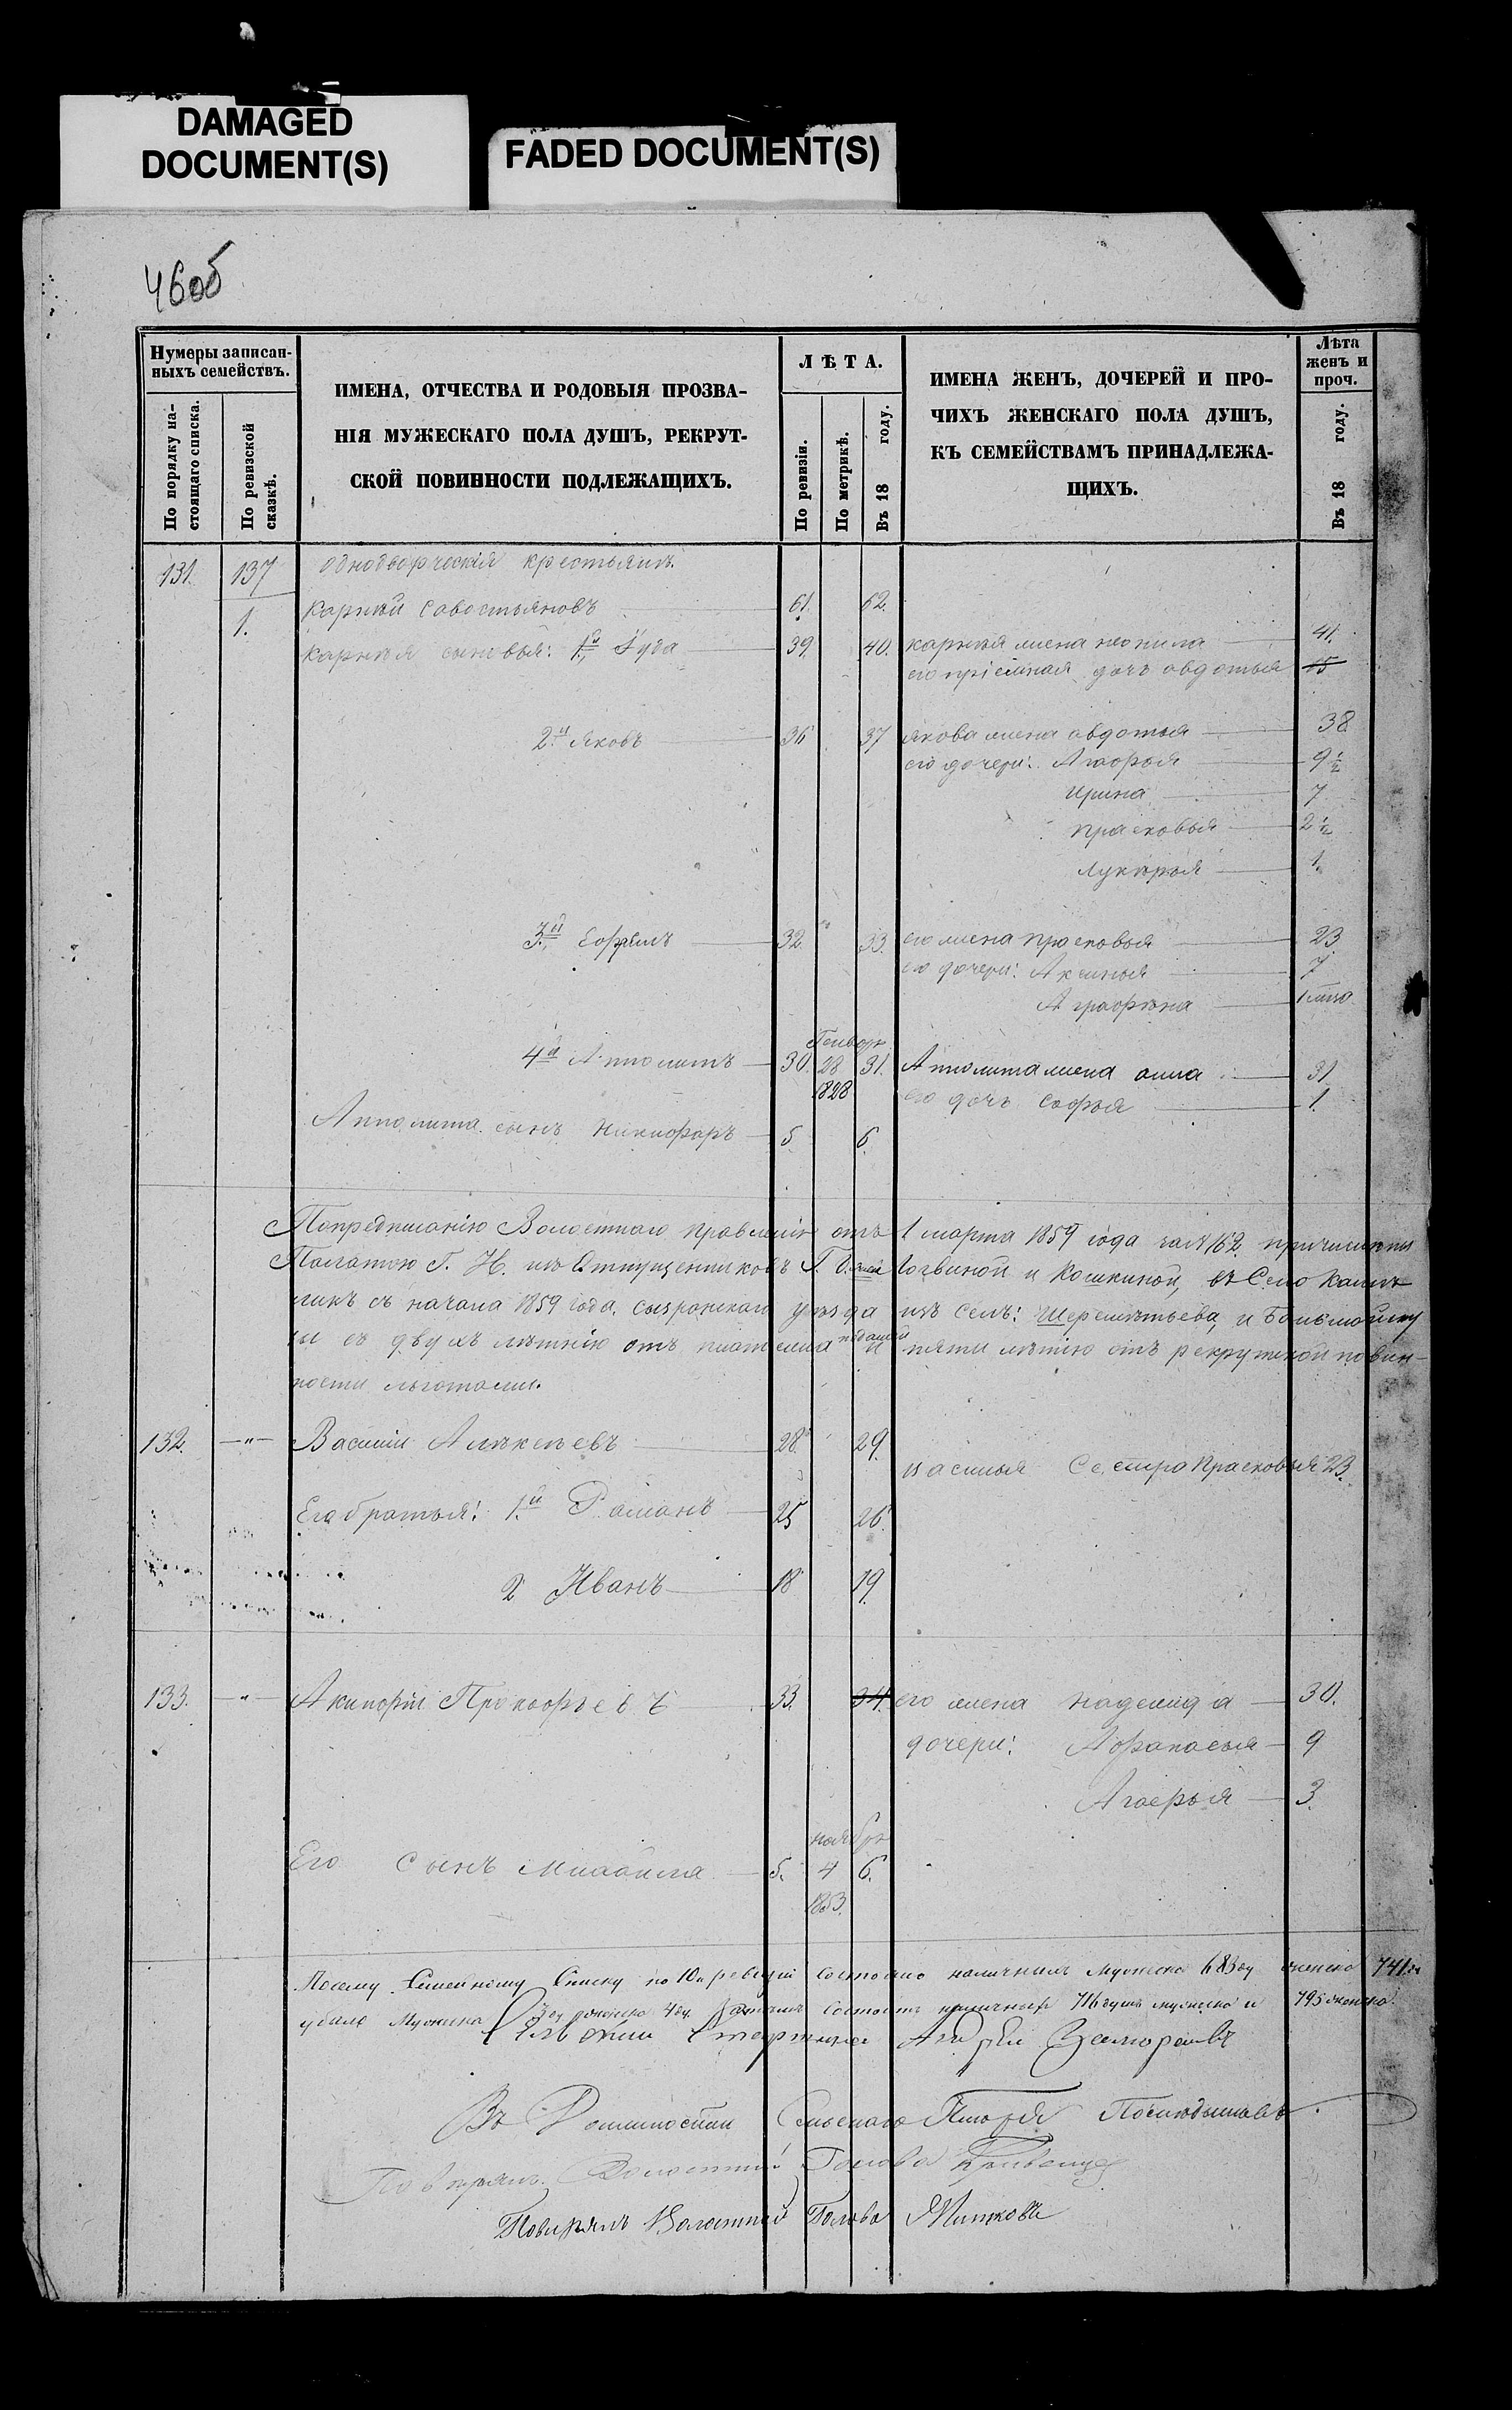 DAMAGED
DOCUMENT(S)
FADED DOCUMENT(S)
46об
Нумеры записан-
ныхъ семействъ.
По порядку на-
стоящаго списка.
По ревизской
сказкѣ.
ИМЕНА, ОТЧЕСТВА И РОДОВЫЯ ПРОЗВА-
НІЯ МУЖЕСКАГО ПОЛА ДУШЪ, РЕКРУТ-
СКОЙ ПОВИННОСТИ ПОДЛЕЖАЩИХЪ.
ЛѢТА.
По ревизіи.
По метрикѣ.
Въ 18 году.
ИМЕНА ЖЕНЪ, ДОЧЕРЕЙ И ПРО-
ЧИХЪ ЖЕНСКАГО ПОЛА ДУШЪ,
КЪ СЕМЕЙСТВАМЪ ПРИНАДЛЕЖА-
ЩИХЪ.
Лѣта
женъ и
проч.
Въ 18 году.
131. 137 однодворческія крестьянъ.
1. Карнѣй Савостьяновъ 61. 62.
Карнѣя сыновья: 1й Гуда 39. 40. карнѣя жена неонила 41.
его пріемная дочь авдотья 15
2й яковъ 36 37 якова жена авдотья 38
его дочери: Агафья 9½
ирина 7
прасковья 2½
лукерья 1.
3й Ефремъ 32. 33. его жена прасковья 23
его дочери: Аксинья 7
Аграфѣна
Генваря
4й Апполитъ 30. 28 31. Апполита жена анна 31
1828 его дочь Софья 1.
Апполита сынъ никифаръ 5 6.
Попредписанію Волостнаго правленія отъ 1 марта 1859 года за №162. причислены
Палатою Г. И. изъ Отпущенниковъ Г. Логвиной и Кошкиной, въ Село
съ начала 1859 года. сызранскаго уѣзда изъ Селъ: Шереметьева, и
съ двухъ лѣтнію отъ платежа податей и пяти лѣтію отъ рекрутской повин-
ности льготами.
132. —"— Василій Алѣксѣевъ 28. 29.
василья Сестра Прасковья 23.
Его братья: 1.й Раманъ 25 26.
2 Иванъ 18 19.
133. —"— Акинфій Прокофьевъ 33. 34. его жена надежда 30.
дочери: Афанасья 9
Агаерья 3.
ноября
Его Сынъ Михайла 5. 4 6.
1853.
Посему Семейному Списку по 10й ревизіи состояло наличныхъ мужеска 683 ду женска 741
убыло мужска состоитъ наличныхъ 716 душъ мужска и 795 женска.
Сельскій Старшина Андрей
Сельскаго
Повѣрялъ: Волостный Голова
Повѣрялъ Волостной Голова